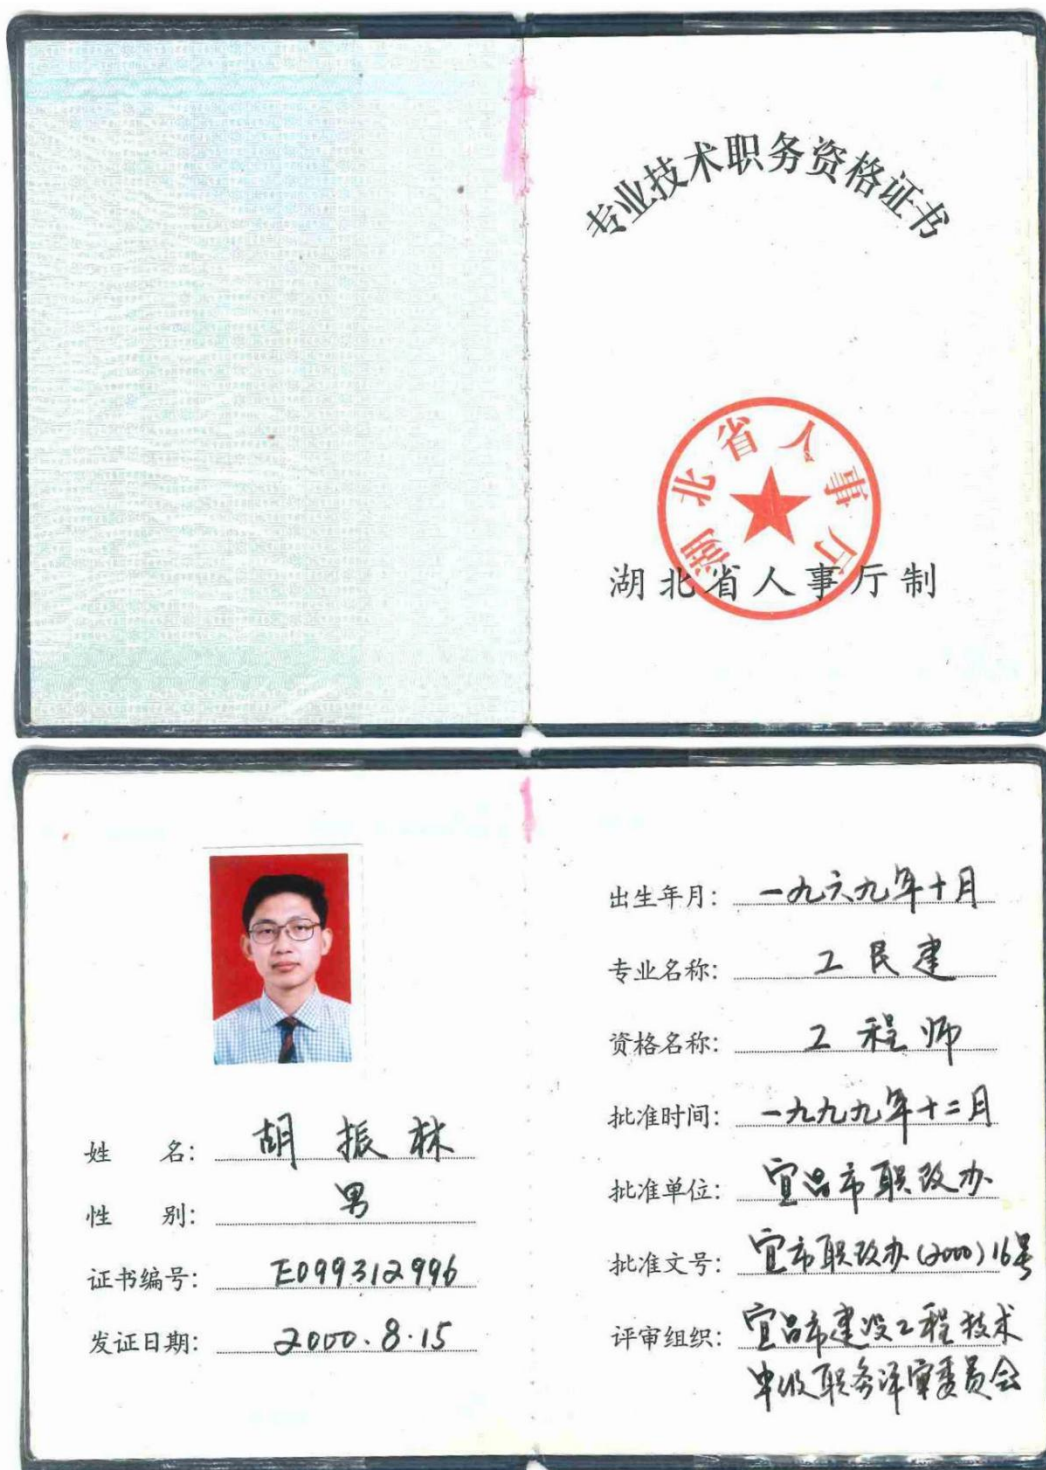 专业技术职务资格证书
湖北省人事厅
湖北省人事厅制
姓 名: 胡振林
性 别: 男
证书编号: E099312996
发证日期: 2000.8.15
出生年月: 一九六九年十月
专业名称: 工民建
资格名称: 工程师
批准时间: 一九九九年十二月
批准单位: 宜昌市职改办
批准文号: 宜市职改办(2000)16号
评审组织: 宜昌市建设工程技术
中级职务评审委员会